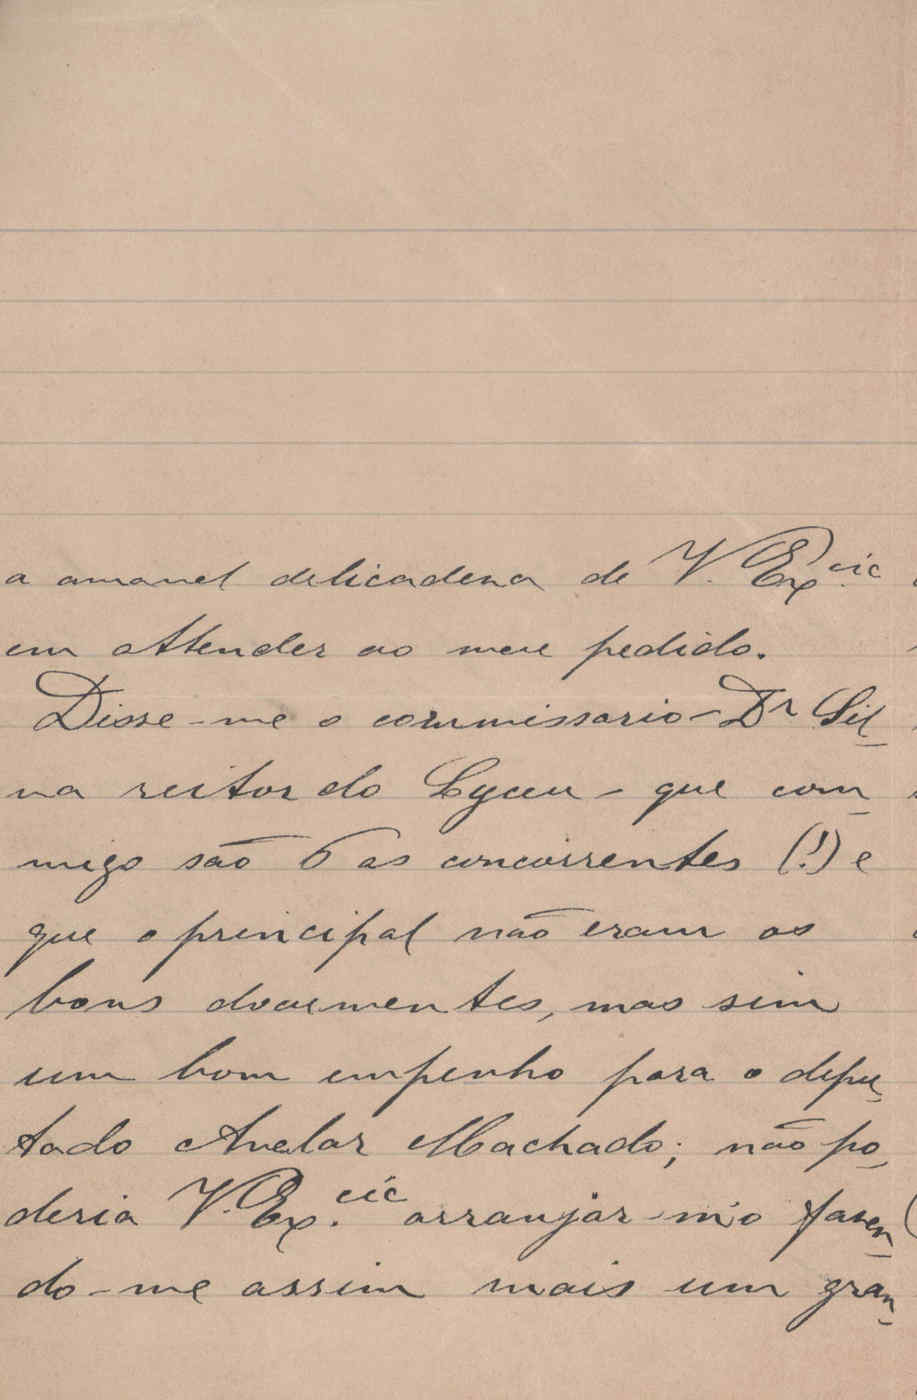 a amavel delicadeza de V. Ex.cia
em attender ao meu pedido.
Disse-me o commissario - Dr Sil-
va reitor do Lyceu - que com-
migo são 6 as concorrentes (!) e
que o principal não eram os
bons documentos, mas sim
um bom empenho para o depu-
tado Avelar Machado; não po-
deria V. Ex.cia arranjar-m'o fazen-
do-me assim mais um gran-